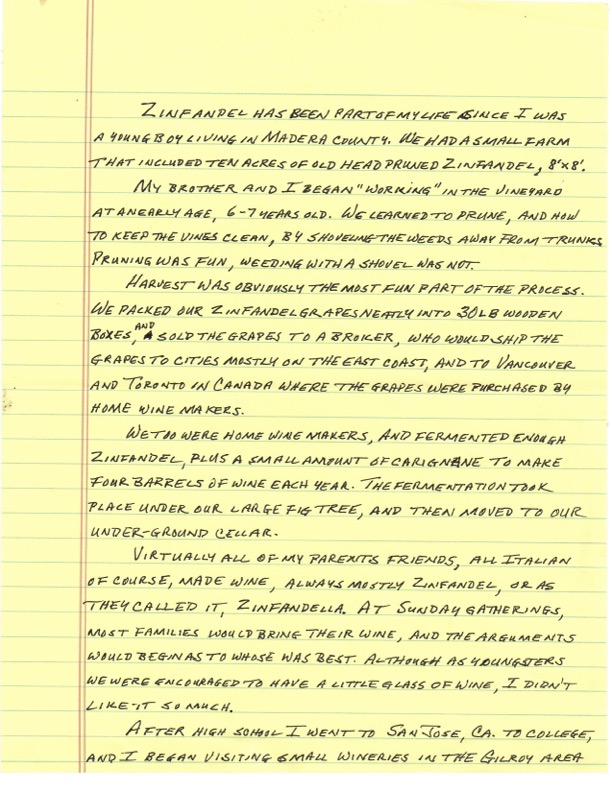 ZINFANDEL HAS BEEN PART OF MY LIFE SINCE I WAS
A YOUNG BOY LIVING IN MADERA COUNTY. WE HAD A SMALL FARM
THAT INCLUDED TEN ACRES OF OLD HEAD PRUNED ZINFANDEL, 8'x8'.
MY BROTHER AND I BEGAN "WORKING" IN THE VINEYARD
AT AN EARLY AGE, 6-7 YEARS OLD. WE LEARNED TO PRUNE, AND HOW
TO KEEP THE VINES CLEAN, BY SHOVELING THE WEEDS AWAY FROM TRUNKS
PRUNING WAS FUN, WEEDING WITH A SHOVEL WAS NOT.
HARVEST WAS OBVIOUSLY THE MOST FUN PART OF THE PROCESS.
WE PACKED OUR ZINFANDEL GRAPES NEATLY INTO 30LB WOODEN
BOXES, AND SOLD THE GRAPES TO A BROKER, WHO WOULD SHIP THE
GRAPES TO CITIES MOSTLY ON THE EAST COAST, AND TO VANCOUVER
AND TORONTO IN CANADA WHERE THE GRAPES WERE PURCHASED BY
HOME WINE MAKERS.
WE TOO WERE HOME WINE MAKERS, AND FERMENTED ENOUGH
ZINFANDEL, PLUS A SMALL AMOUNT OF CARIGNANE TO MAKE
FOUR BARRELS OF WINE EACH YEAR. THE FERMENTATION TOOK
PLACE UNDER OUR LARGE FIG TREE, AND THEN MOVED TO OUR
UNDER-GROUND CELLAR.
VIRTUALLY ALL OF MY PARENTS FRIENDS, ALL ITALIAN
OF COURSE, MADE WINE, ALWAYS MOSTLY ZINFANDEL, OR AS
THEY CALLED IT, ZINFANDELLA. AT SUNDAY GATHERINGS,
MOST FAMILIES WOULD BRING THEIR WINE, AND THE ARGUMENTS
WOULD BEGIN AS TO WHOSE WAS BEST. ALTHOUGH AS YOUNGSTERS
WE WERE ENCOURAGED TO HAVE A LITTLE GLASS OF WINE, I DIDN'T
LIKE IT SO MUCH.
AFTER HIGH SCHOOL I WENT TO SAN JOSE, CA. TO COLLEGE,
AND I BEGAN VISITING SMALL WINERIES IN THE GILROY AREA